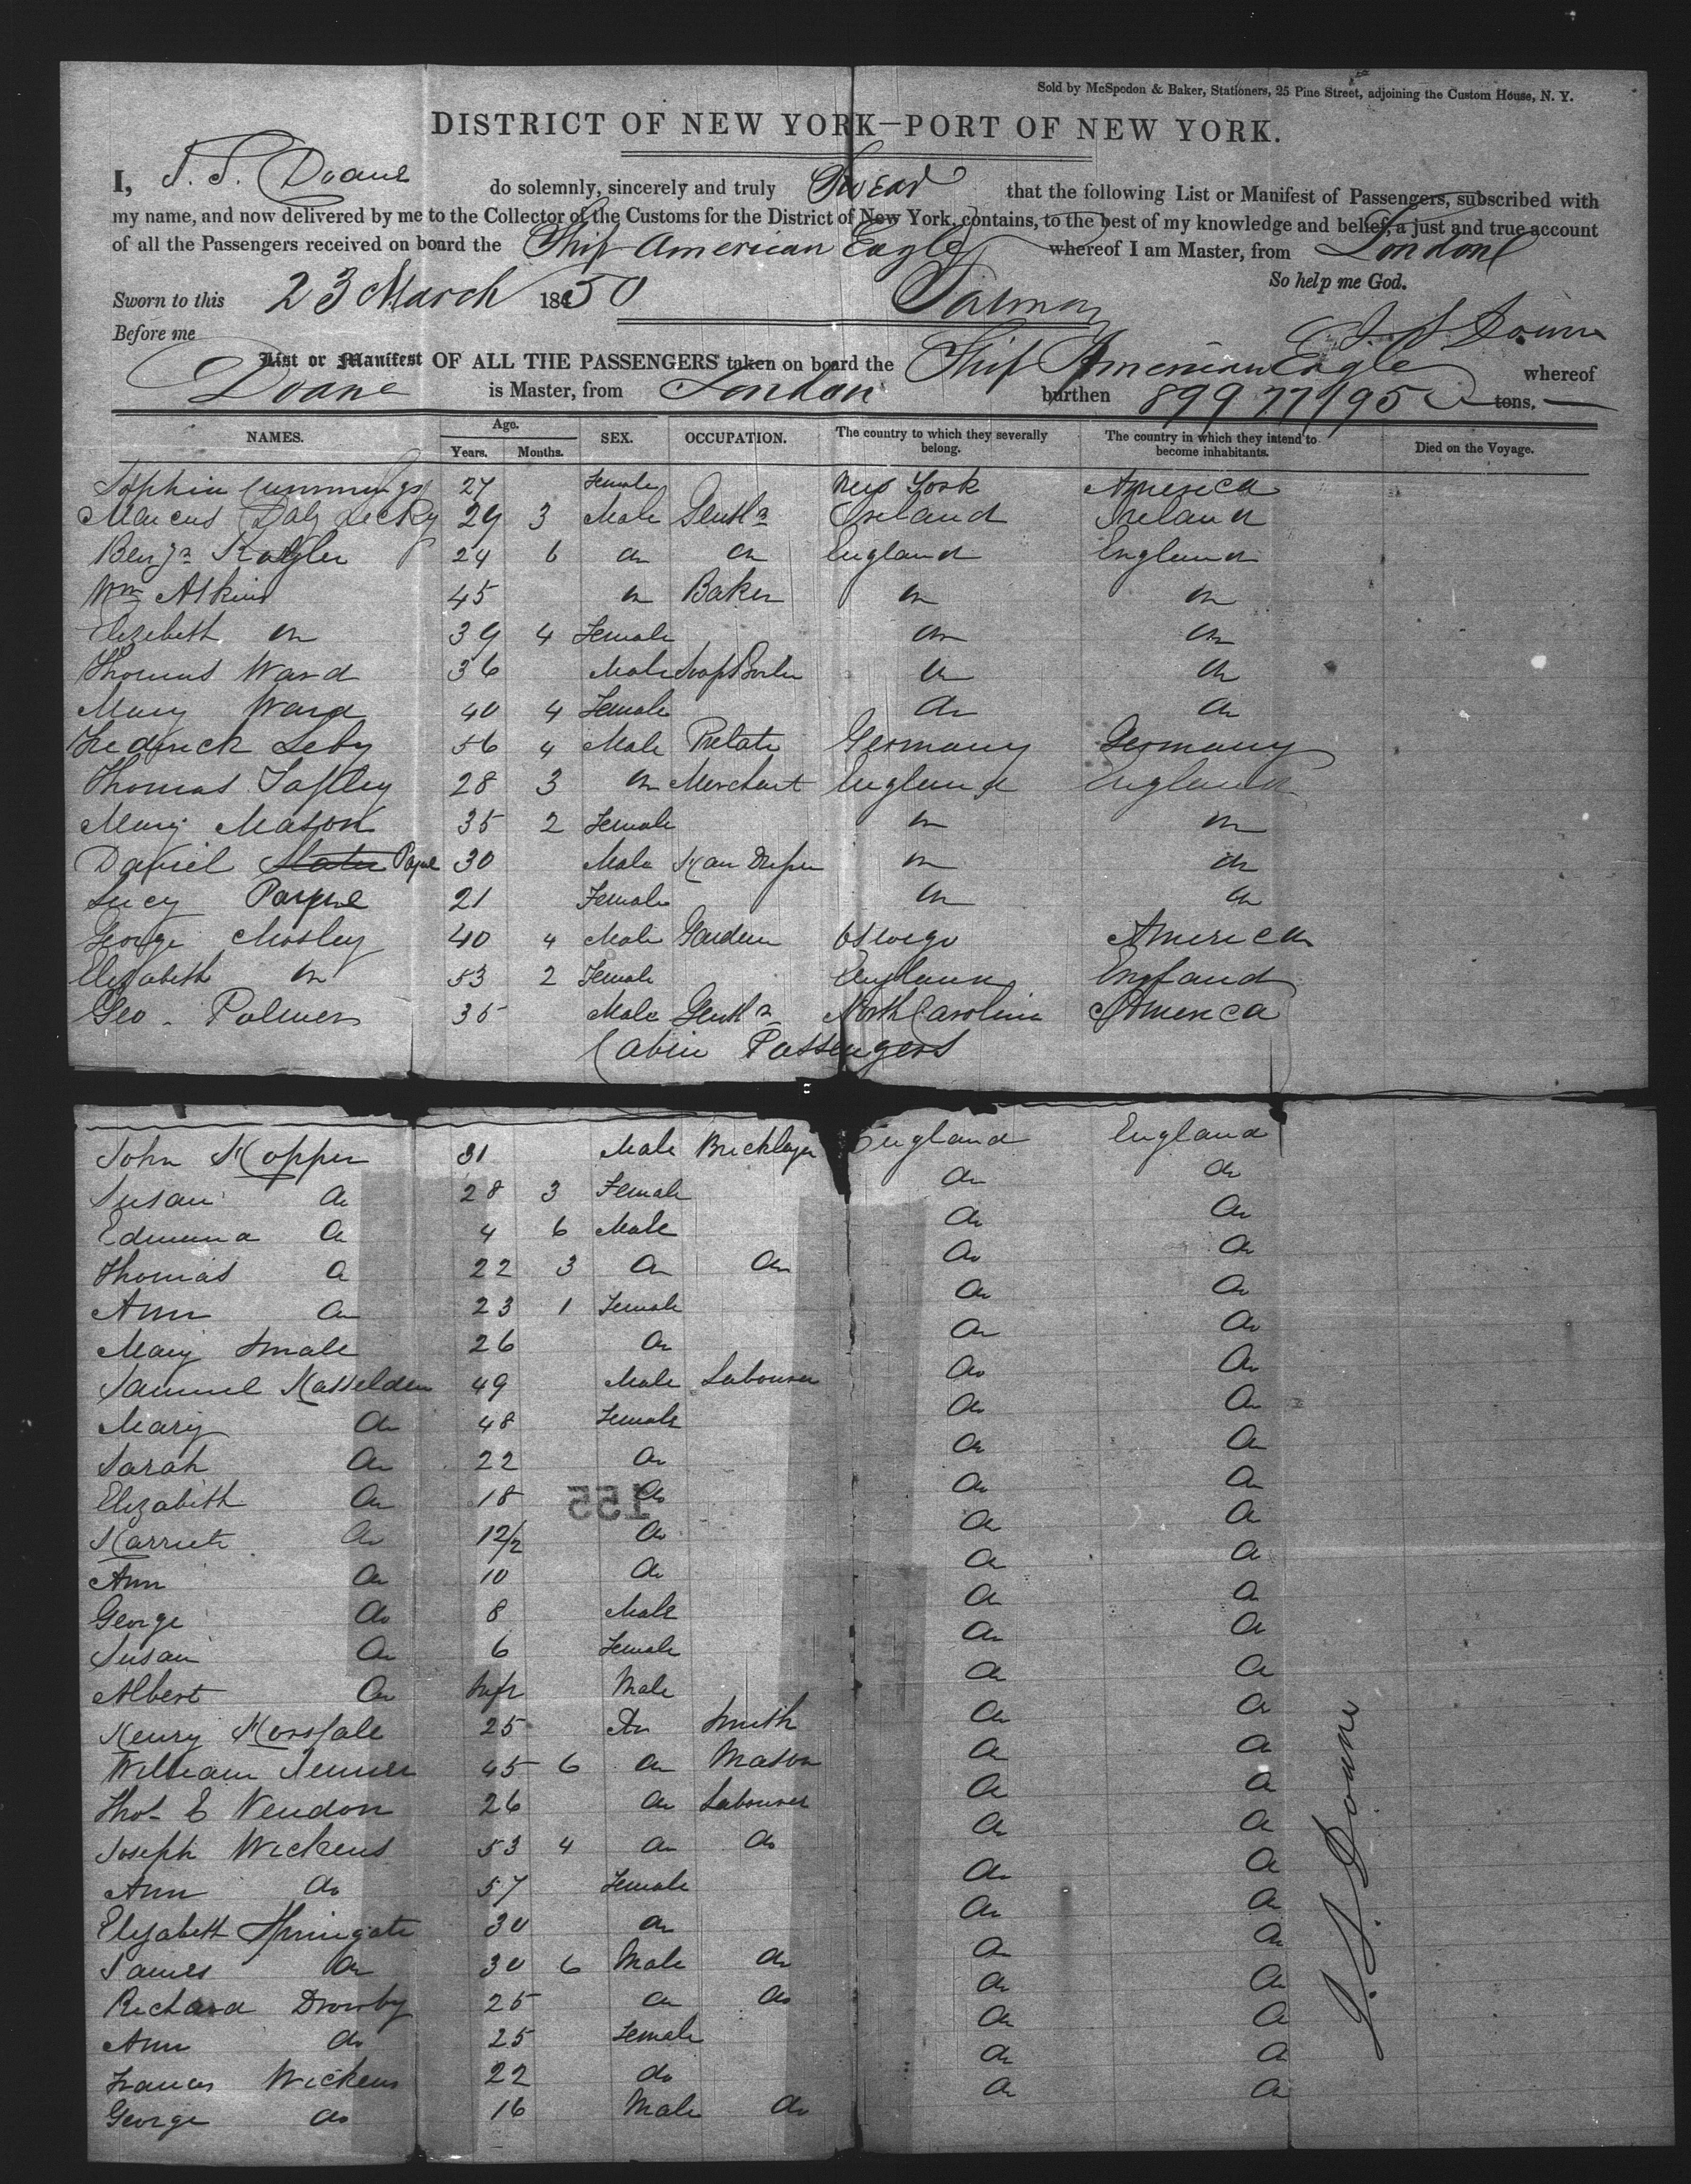 Sold by McSpedon & Baker, Stationers, 25 Pine Street, adjoining the Custom House, N. Y.
DISTRICT OF NEW YORK—PORT OF NEW YORK.
I, Doane do solemnly, sincerely and truly Swear that the following List or Manifest of Passengers, subscribed with
my name, and now delivered by me to the Collector of the Customs for the District of New York, contains, to the best of my knowledge and belief, a just and true account
of all the Passengers received on board the Ship American Eagle whereof I am Master, from London
So help me God.
Sworn to this 23 March 1850
Before me
List or Manifest OF ALL THE PASSENGERS taken on board the Ship American Eagle whereof
Doane is Master, from London burthen 899 77/95 tons.
NAMES. Age. Years. Months. SEX. OCCUPATION. The country to which they severally belong. The country in which they intend to become inhabitants. Died on the Voyage.
Sophia Cummings 27 Female New York America
Marcus Lecky 29 3 Male Gentln Ireland Ireland
Benjn 24 6 do do England England
Wm Atkins 45 do Baker do do
Elizebeth do 39 4 Female do do
Thomas Ward 36 Male Soap Boiler do do
Mary Ward 40 4 Female do do
Frederick 56 4 Male Germany Germany
Thomas 28 3 do Merchant England England
Mary Mason 35 2 Female do do
Daniel Payne 30 Male do do
Lucy Payne 21 Female do do
George Mosley 40 4 Male Gardener Oswego America
Elizabeth do 53 2 Female England England
Geo. Palmer 35 Male Gentln North Carolina America
Cabin Passengers
John Hopper 31 Male Bricklayer England England
Susan do 28 3 Female do do
Edmund do 4 6 Male do do
Thomas do 22 3 do do do do
Ann do 23 1 Female do do
Mary Smale 26 do do do
Samuel Hasselden 49 Male Labourer do do
Mary do 48 Female do do
Sarah do 22 do do do
Elizabeth do 18 do do do
155
Harriet do 12/2 do do do
Ann do 10 do do do
George do 8 Male do do
Susan do 6 Female do do
Albert do Inft Male do do
Henry 25 do Smith do do
William 45 6 do Mason do do
Thos E 26 do Labourer do do
Joseph Wickens 53 4 do do do do
Ann do 57 Female do do
Elizabeth Springate 30 do do do
James do 30 6 Male do do do
Richard 25 do do do do
Ann do 25 Female do do
Frances Wickens 22 do do do
George do 16 Male do do do